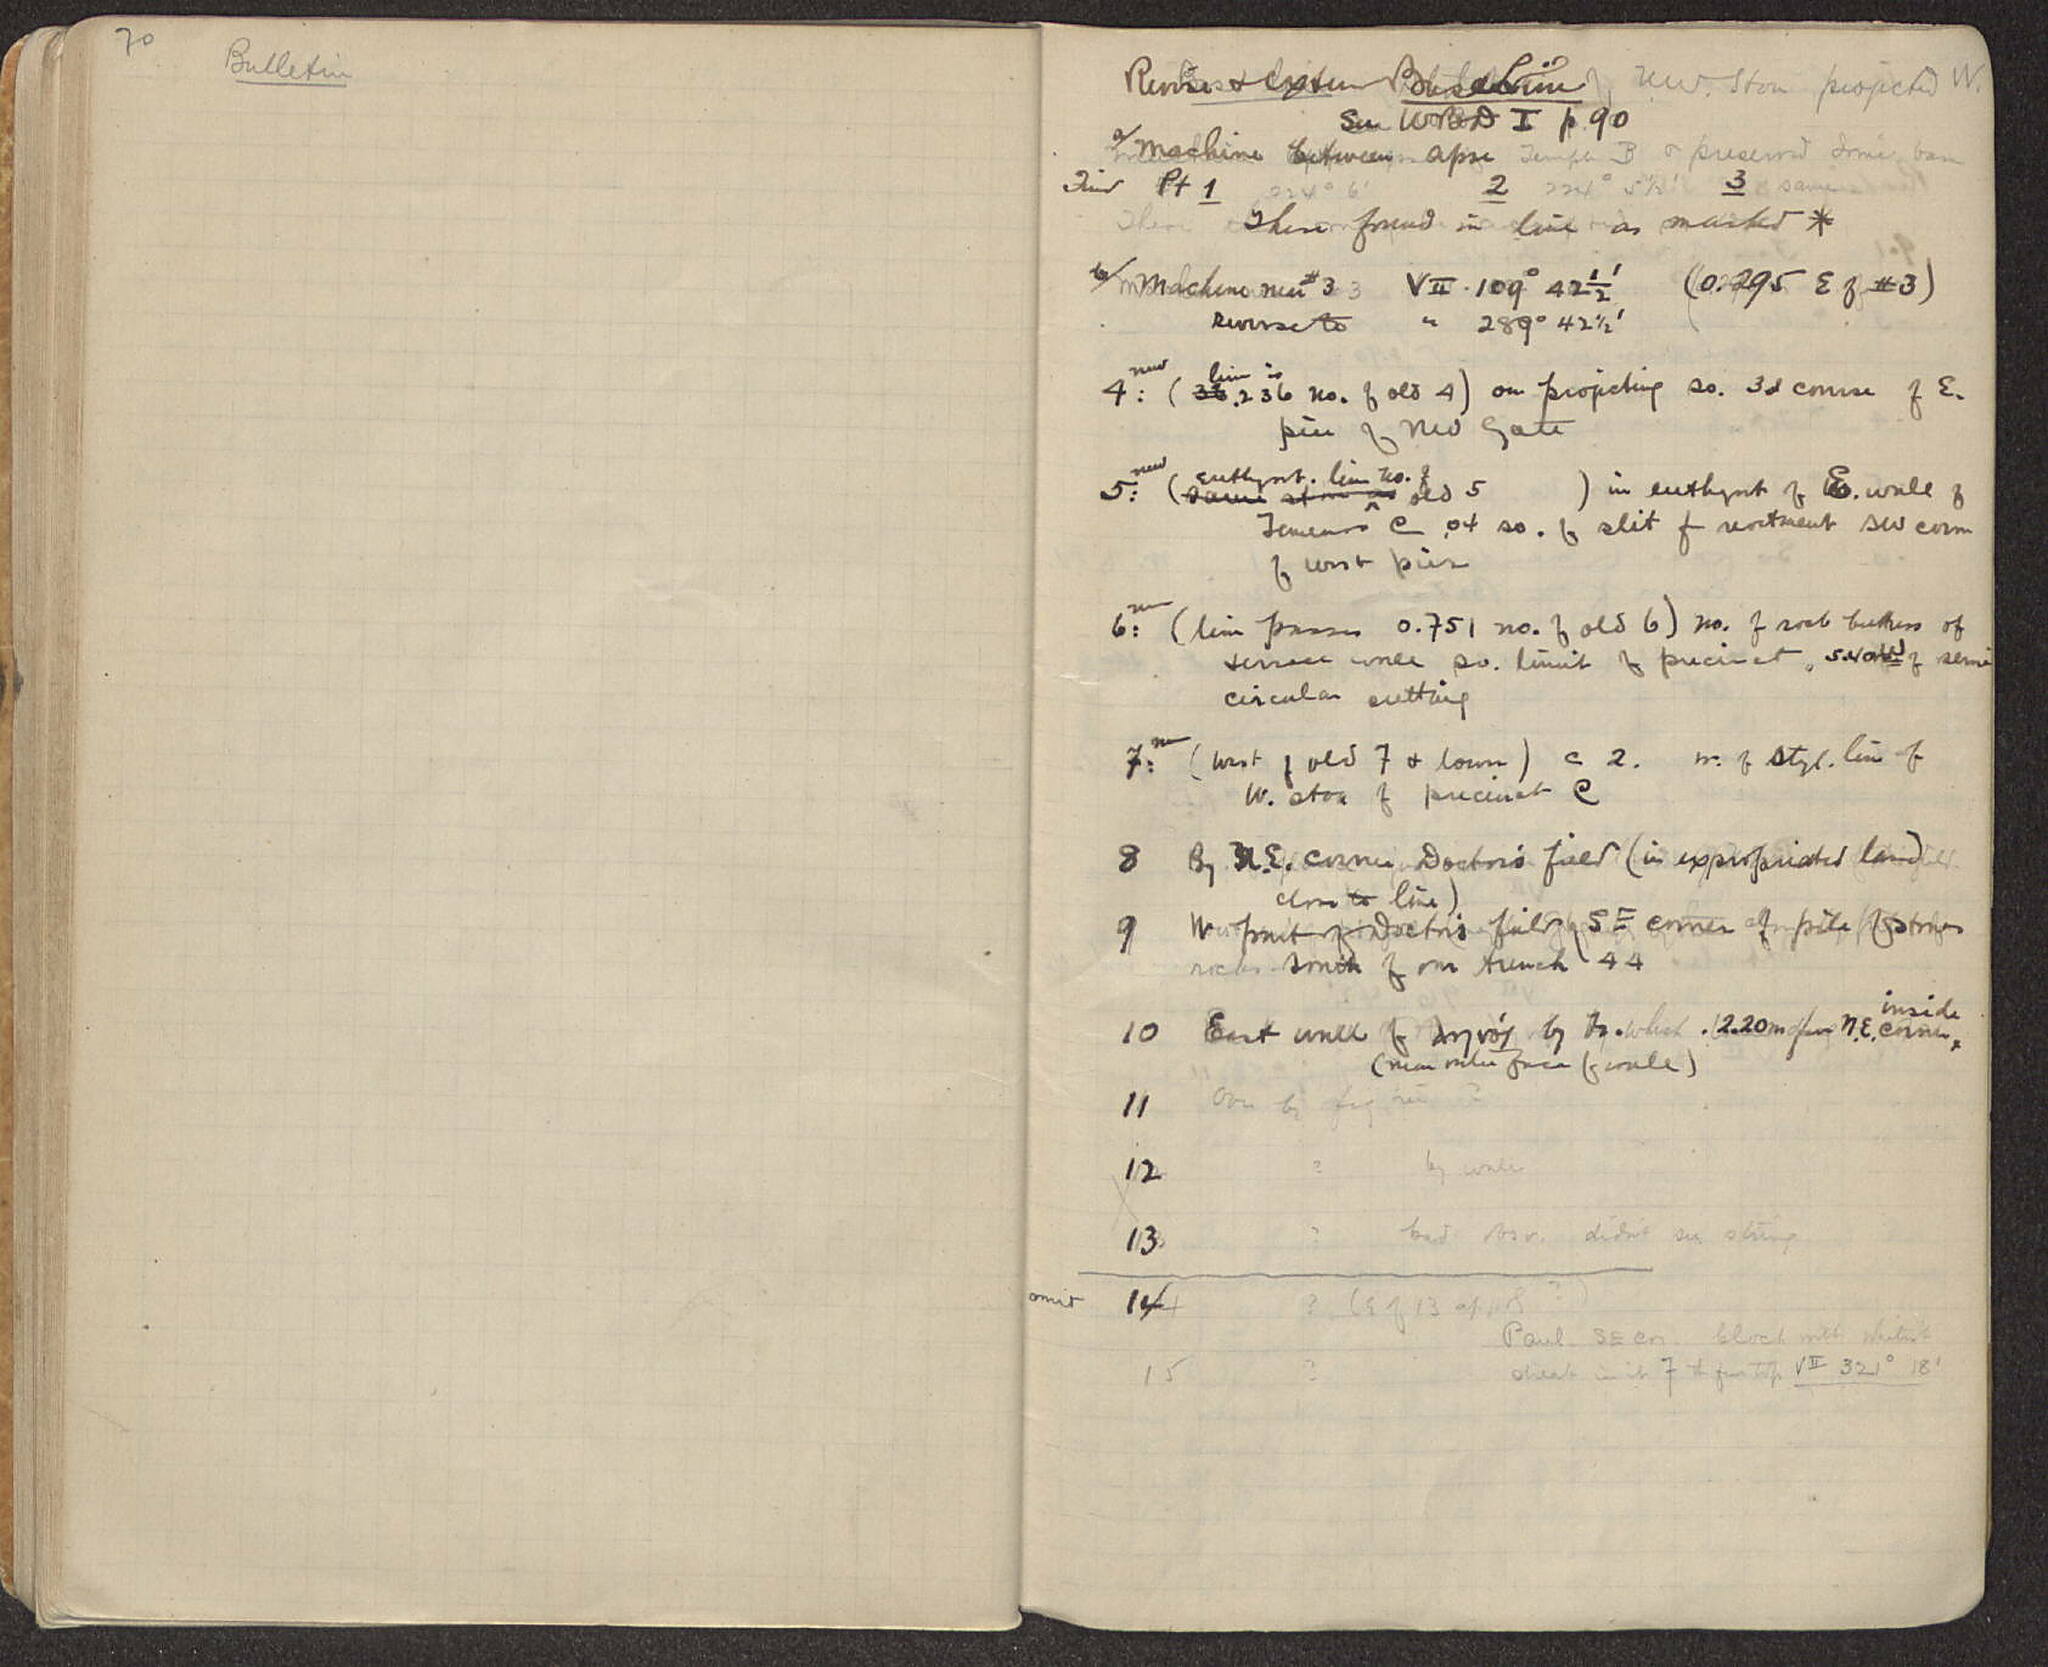 70
Bulletin
Revise & Extend Base Line N.W. Stoa projected W.
See WBD I p. 90
a/ Machine between apse Temple B & preserved Doric base
Find Pt 1 224° 6' 2 224° 5½' 3 same
These found in line as marked *
b/ Machine near #3 VII 109° 42½' (0.295 E of #3)
Reverse to " 289° 42½'
4: new (line is .236 no. of old 4) on projecting so. 3d course of E.
pier of NW Gate
5: new (euthynt. line no. of old 5 ) in euthynt of wall of
Temenos C .04 so. of slit f SW corn
of west pier
6: new (line passes 0.751 no. of old 6) no. of buttress of
terrace wall so. limit of precinct, of semi
circular cutting
7: new (west of old 7 & lower) c 2. w. of styl. line of
W. stoa of precinct C
8 By N.E. corner Doctor's field (in expropriated land
close to line)
9 W part of Doctor's field, SE corner of pile of stones
rocks South of our trench 44
10 East wall of ληνός by Tr. 12.20m from N.E. inside corner
(near outer face of wall)
11 Over by fig tree ?
12 ? by wall
13 ? bad obsv. didn't see string
omit 14 ? (E of 13
Paul. SE cor. block with
in it 7th from top VII 321° 18'
15 ?